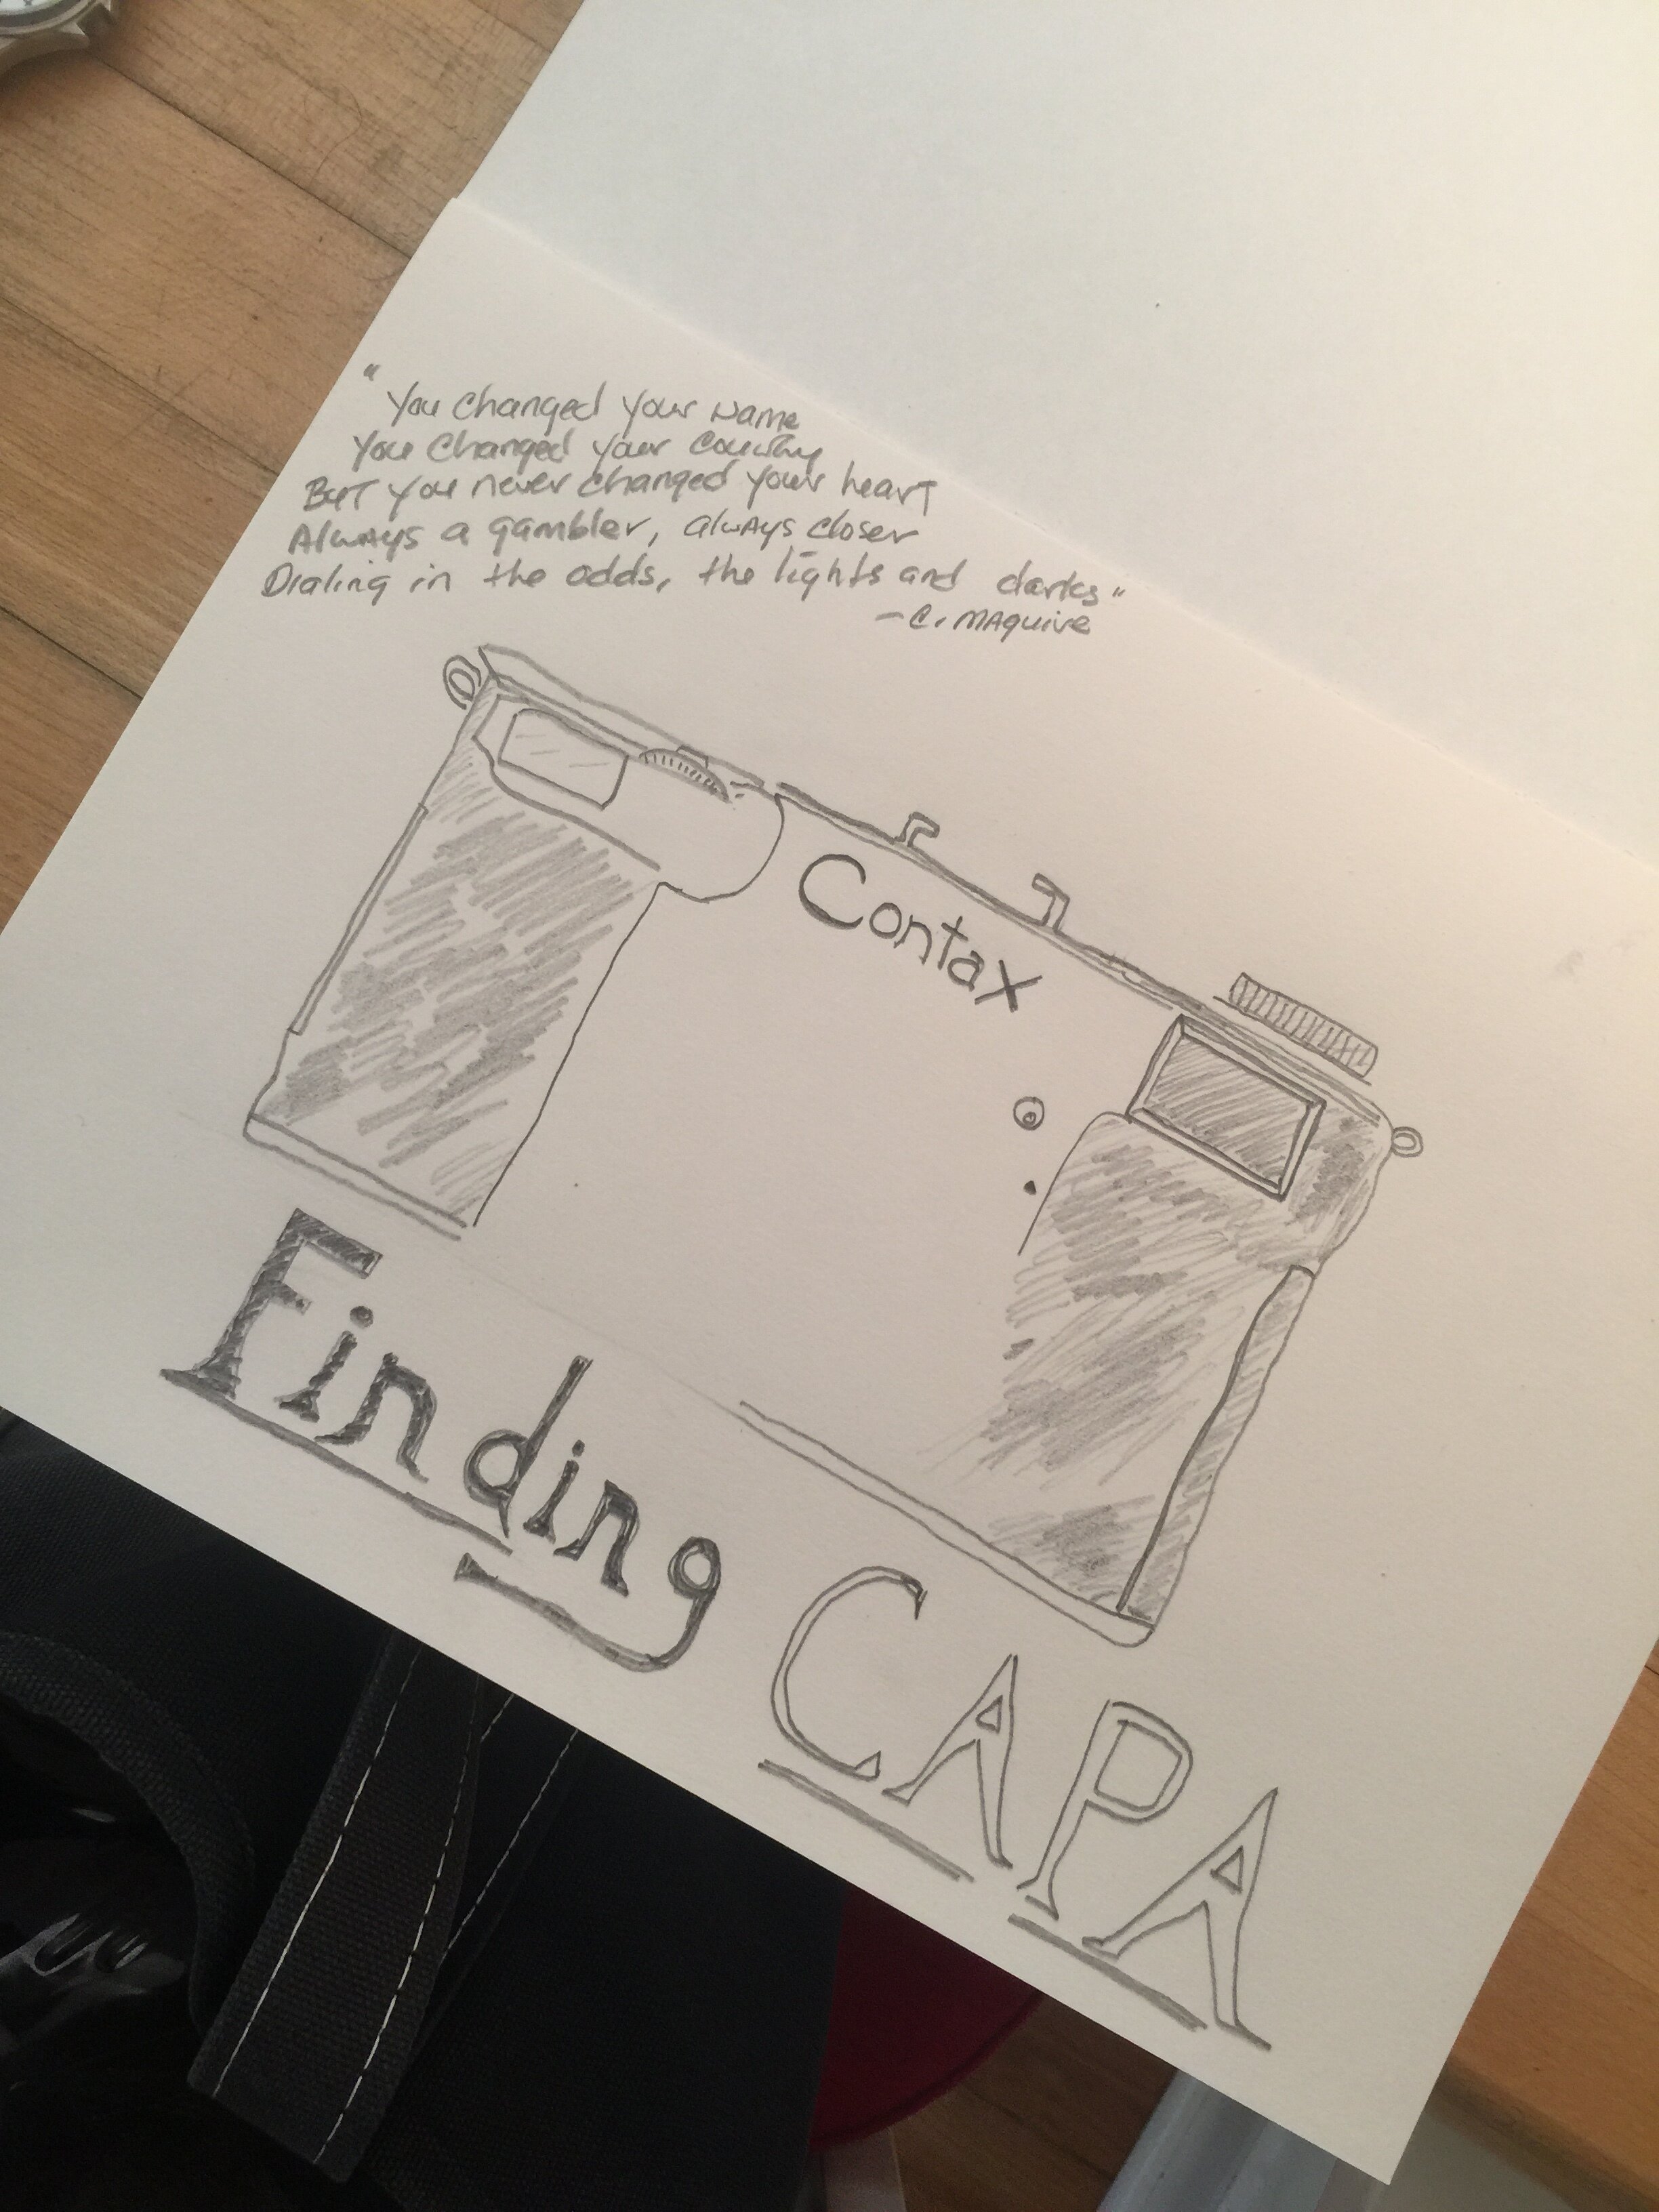 "You changed your Name
You Changed your Country
But you never changed your heart
Always a gambler, always closer
Dialing in the odds, the lights and darks"
- C. MAquire
Contax
Finding CAPA